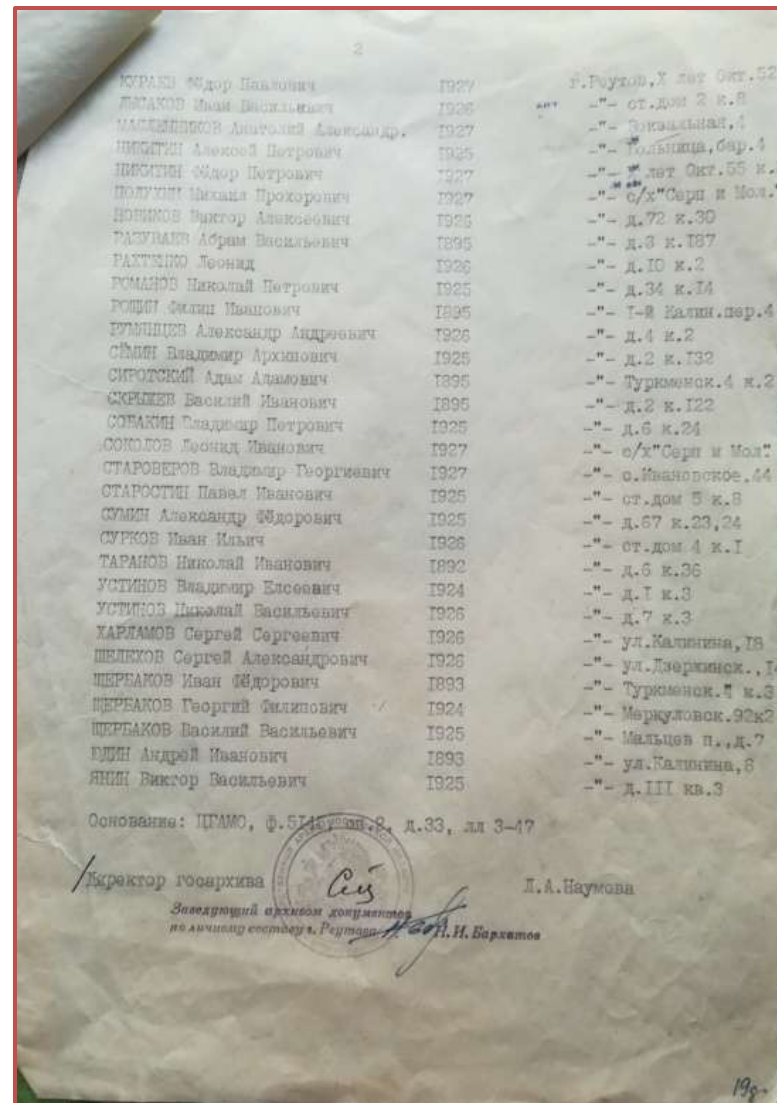 2
КУРАЕВ Фёдор Павлович 1927 г.Реутов,X лет Окт.52
ЛЫСАКОВ Иван Васильевич 1926 -"- ст.дом 2 к.8
МАСЛЕННИКОВ Анатолий Александр. 1927 -"- Вокзальная,4
НИКИТИН Алексей Петрович 1925 -"- Больница,бар.4
НИКИТИН Фёдор Петрович 1927 -"- лет Окт.55 к.
ПОЛУХИН Михаил Прохорович 1927 -"- с/х"Серп и Мол."
НОВИКОВ Виктор Алексеевич 1926 -"- д.72 к.30
РАЗУВАЕВ Абрам Васильевич 1895 -"- д.3 к.I87
РАХТЕНКО Леонид 1926 -"- д.IO к.2
РОМАНОВ Николай Петрович 1925 -"- д.34 к.I4
РОЩИН Филип Иванович I895 -"- I-й Калин.пер.4
РУМЯНЦЕВ Александр Андреевич I926 -"- д.4 к.2
СЁМИН Владимир Архипович I925 -"- д.2 к.I32
СИРОТСКИЙ Адам Адамович I895 -"- Туркменск.4 к.2
СКРЫЖЕВ Василий Иванович I895 -"- д.2 к.I22
СОБАКИН Владимир Петрович I925 -"- д.6 к.24
СОКОЛОВ Леонид Иванович I927 -"- с/х"Серп и Мол."
СТАРОВЕРОВ Владимир Георгиевич I927 -"- с.Ивановское,44
СТАРОСТИН Павел Иванович I925 -"- ст.дом 5 к.8
СУМИН Александр Фёдорович I925 -"- д.67 к.23,24
СУРКОВ Иван Ильич I926 -"- ст.дом 4 к.I
ТАРАНОВ Николай Иванович I892 -"- д.6 к.36
УСТИНОВ Владимир Елсеевич I924 -"- д.I к.3
УСТИНОВ Николай Васильевич I926 -"- д.7 к.3
ХАРЛАМОВ Сергей Сергеевич I926 -"- ул.Калинина,I8
ШЕЛЕХОВ Сергей Александрович I926 -"- ул.Дзержинск.,I4
ЩЕРБАКОВ Иван Фёдорович I893 -"- Туркменск. к.3
ЩЕРБАКОВ Георгий Филипович I924 -"- Меркуловск.92к2
ЩЕРБАКОВ Василий Васильевич I925 -"- Мальцев п.,д.7
ЮДИН Андрей Иванович I893 -"- ул.Калинина,8
ЯНИН Виктор Васильевич I925 -"- д.III кв.3
Основание: ЦГАМО, ф.5I45, оп.2, д.33, лл 3-47
Директор госархива Л.А.Наумова
Заведующий архивом документов
по личному составу г. Реутова Н. И. Бархатов